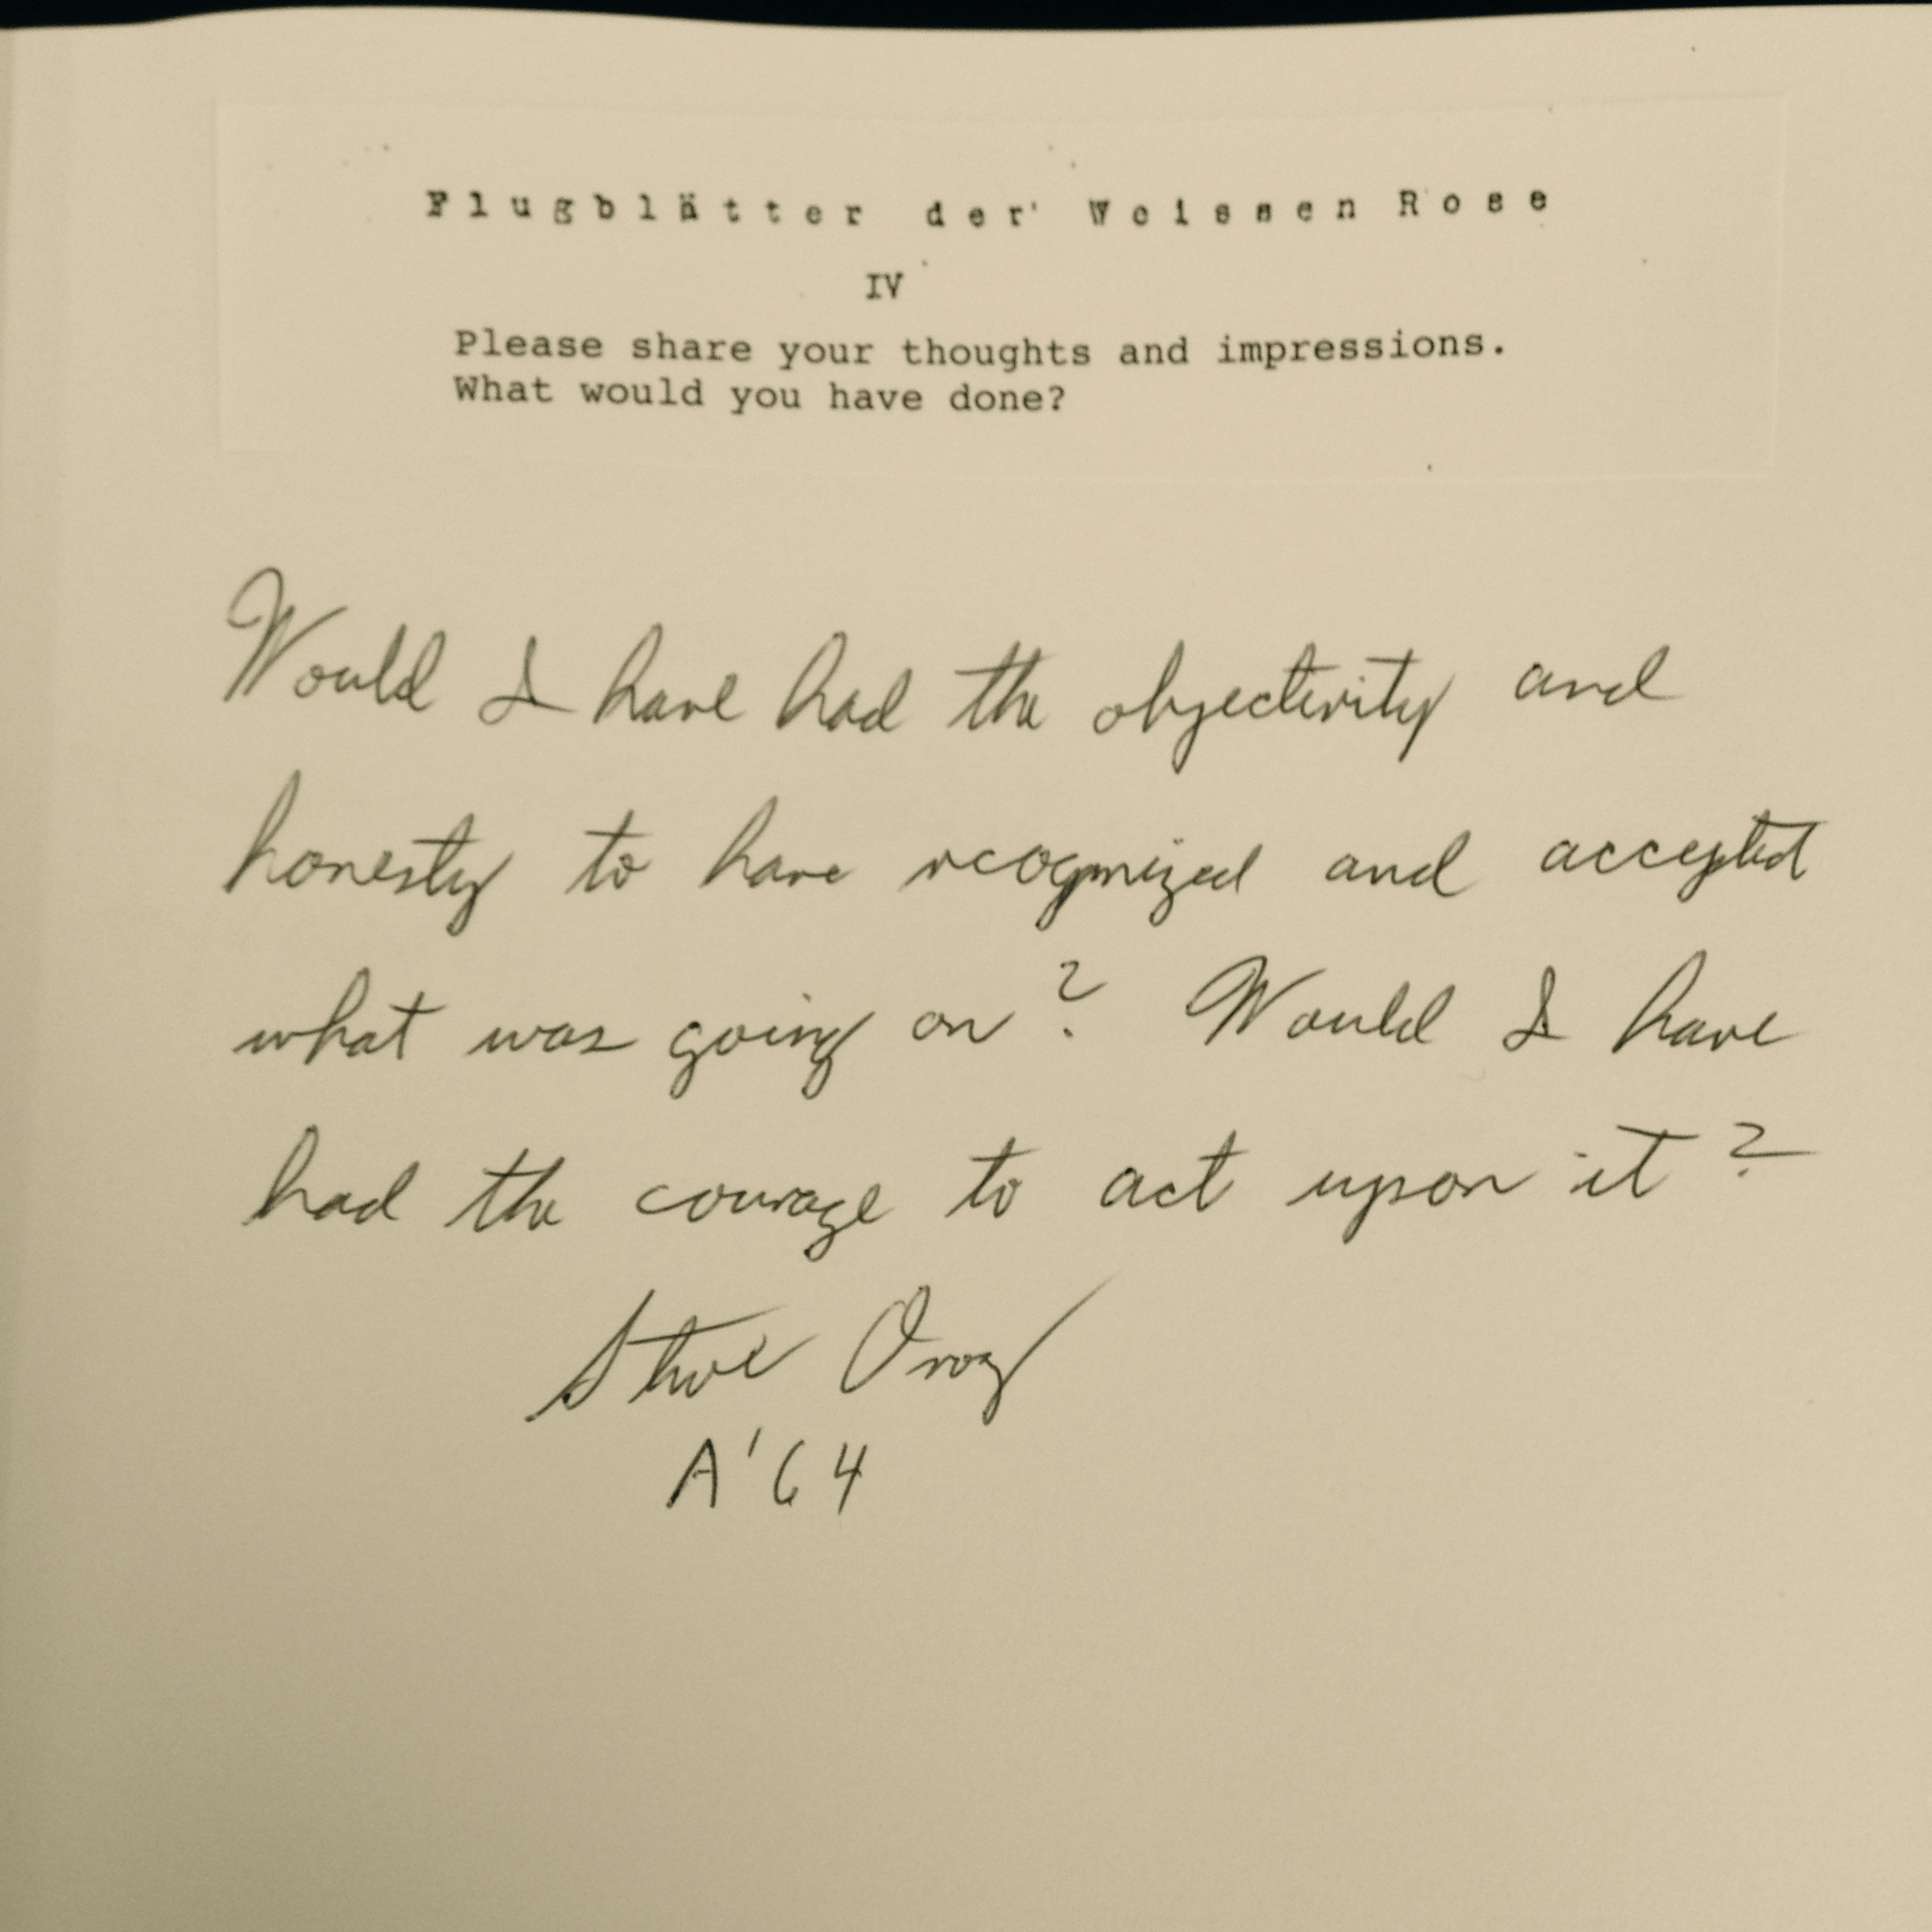 Flugblätter der Weissen Rose
IV
Please share your thoughts and impressions.
What would you have done?
Would I have had the objectivity and
honesty to have recognized and accepted
what was going on? Would I have
had the courage to act upon it?
Steve
A'64